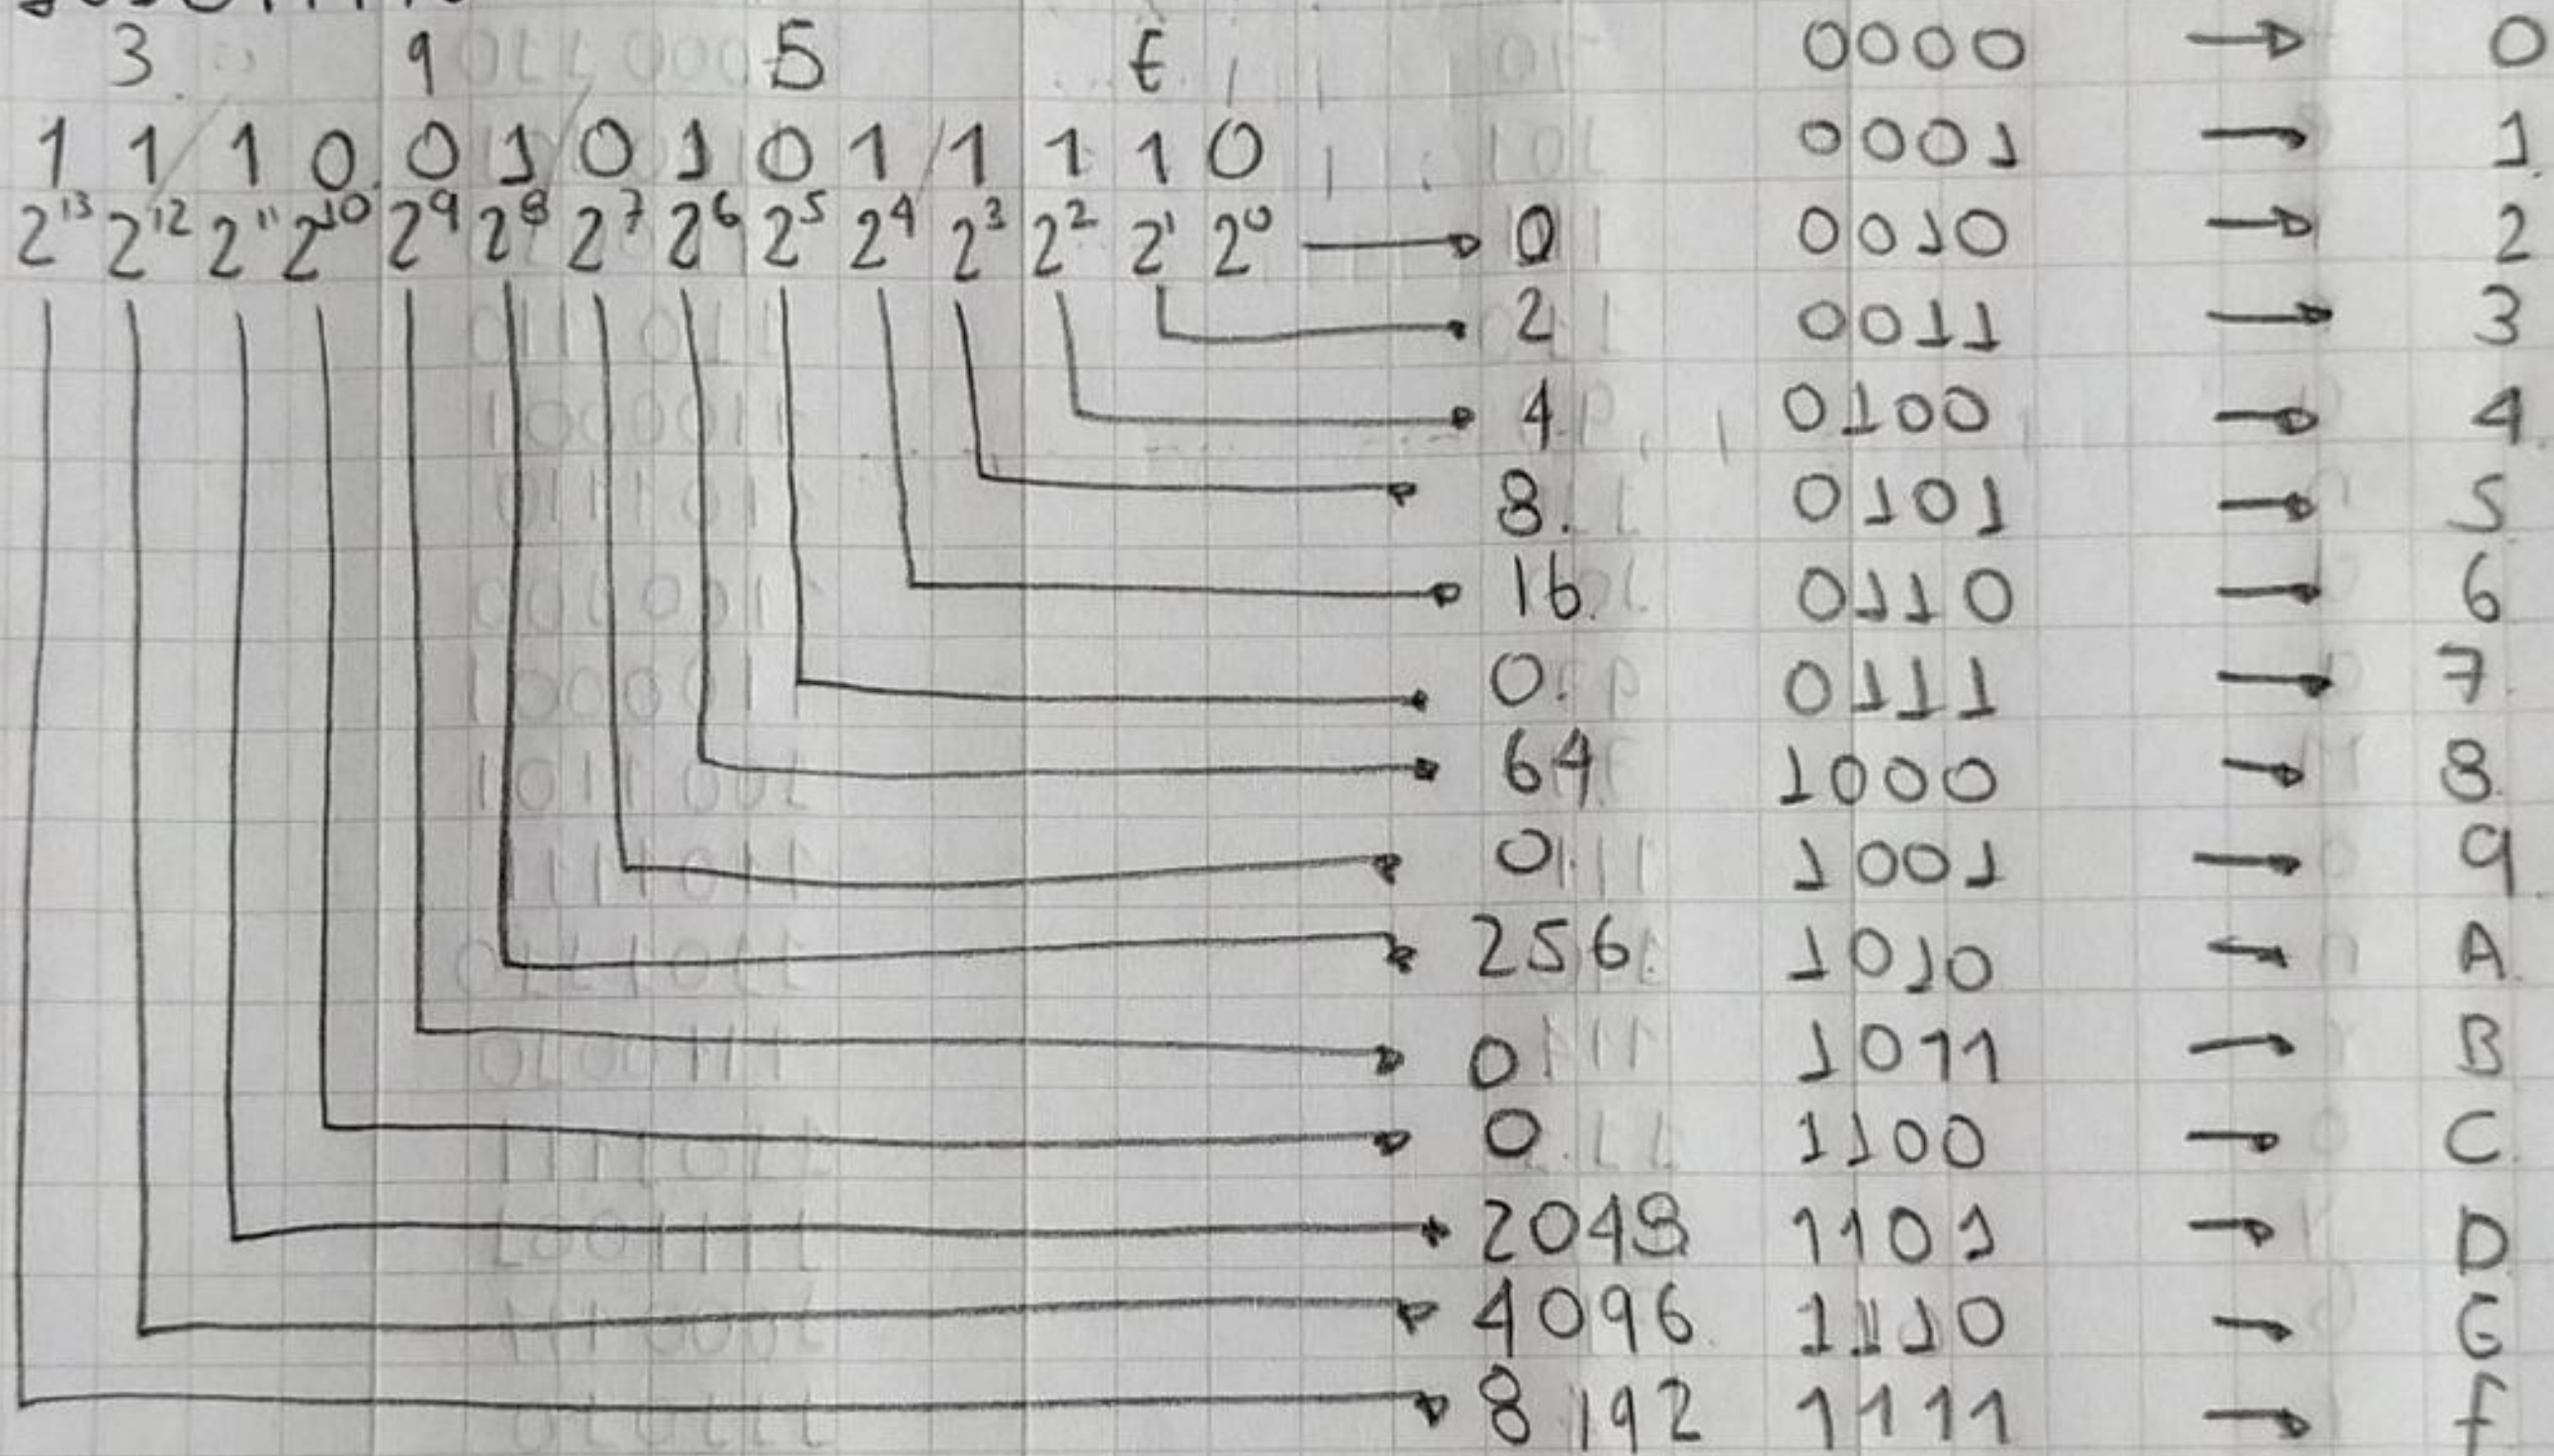 3 9 5 E
1 1 1 0 0 1 0 1 0 1 1 1 1 0
2¹³ 2¹² 2¹¹ 2¹⁰ 2⁹ 2⁸ 2⁷ 2⁶ 2⁵ 2⁴ 2³ 2² 2¹ 2⁰ → 0
2
4
8
16
0
64
0
256
0
0
2048
4096
8192
0000 → 0
0001 → 1
0010 → 2
0011 → 3
0100 → 4
0101 → 5
0110 → 6
0111 → 7
1000 → 8
1001 → 9
1010 → A
1011 → B
1100 → C
1101 → D
1110 → E
1111 → F